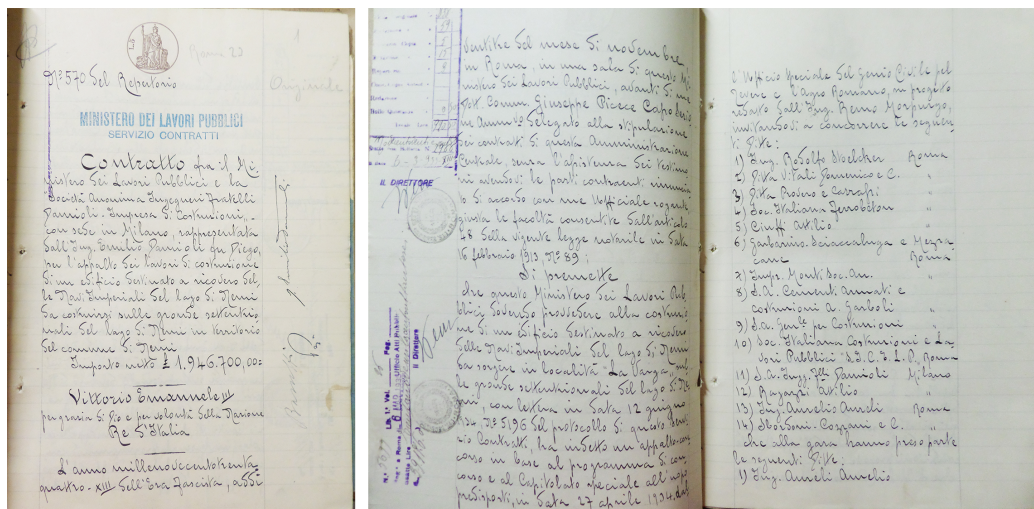 Roma 20
1
Originale
N° 570 del Repertorio
MINISTERO DEI LAVORI PUBBLICI
SERVIZIO CONTRATTI
Contratto fra il Mi-
nistero dei Lavori Pubblici e la
Società Anonima Ingegneri Fratelli
Damioli - Impresa di Costruzioni, -
con sede in Milano, rappresentata
dall'Ing. Emilio Damioli fu Diego,
per l'appalto dei lavori di costruzione
di un edificio destinato a ricovero del-
le Navi Imperiali del lago di Nemi
da costruirsi sulle grondе settentrio-
nali del lago di Nemi in territorio
del comune di Nemi
Importo netto £ 1.946.700,00=
Vittorio Emanuele III
per grazia di Dio e per volontà della Nazione
Re d'Italia
L'anno millenovecentotrenta-
quattro - XIII dell'Era Fascista, addì
IL DIRETTORE
ventitre del mese di novembre,
in Roma, in una sala di questo Mi-
nistero dei Lavori Pubblici, avanti di me
Dott. Comm. Giuseppe Picece Capo Sezio-
ne Amm.vo delegato alla stipulazione
dei contratti di questa Amministrazione
Centrale, senza l'assistenza dei testimo-
ni avendovi le parti contraenti rinuncia-
to di accordo con me Ufficiale rogante,
giusta le facoltà consentite dall'articolo
48 della vigente legge notarile in data
16 febbraio 1913, N° 89;
Si premette
che questo Ministero dei Lavori Pub-
blici dovendo provvedere alla costruzio-
ne di un edificio destinato a ricovero
delle Navi Imperiali del lago di Nemi
da sorgere in località "La Varga", sul-
le gronde settentrionali del lago di Ne-
mi, con lettera in data 12 giugno
1934, N° 5196 del protocollo di questo Servi-
zio Contratti, ha indetto un appalto-con-
corso in base al programma di con-
corso e al Capitolato speciale all'uopo
predisposti, in data 27 aprile 1934, dal-
Il Direttore
l'Ufficio Speciale del Genio Civile pel
Tevere e l'Agro Romano, in progetto
redatto dall'Ing. Remo Morpurgo,
invitandovi a concorrere le seguen-
ti Ditte:
1) Ing. Rodolfo Stoelcker Roma
2) Ditta Vitali Domenico e C. "
3) Ditta Rovero e Cavrapi "
4) Soc. Italiana Ferrobeton "
5) Ciuffi Attilio "
6) Garbarino Sciaccaluga e Mezza-
cane Roma
7) Impr. Monti Soc. An. "
8) S.A. Cementi Armati e
costruzioni A. Garboli "
9) S.A. Gen.le per Costruzioni "
10) Soc. Italiana Costruzioni e La-
vori Pubblici "S.I.C.E.L.P." Roma
11) S.A. Ingg. F.lli Damioli Milano
12) Ragazzi Attilio "
13) Ing. Aurelio Aureli Roma
14) Sboisoni. Cozzani e C. "
che alla gara hanno preso parte
le seguenti Ditte:
1) Ing. Aureli Aurelio